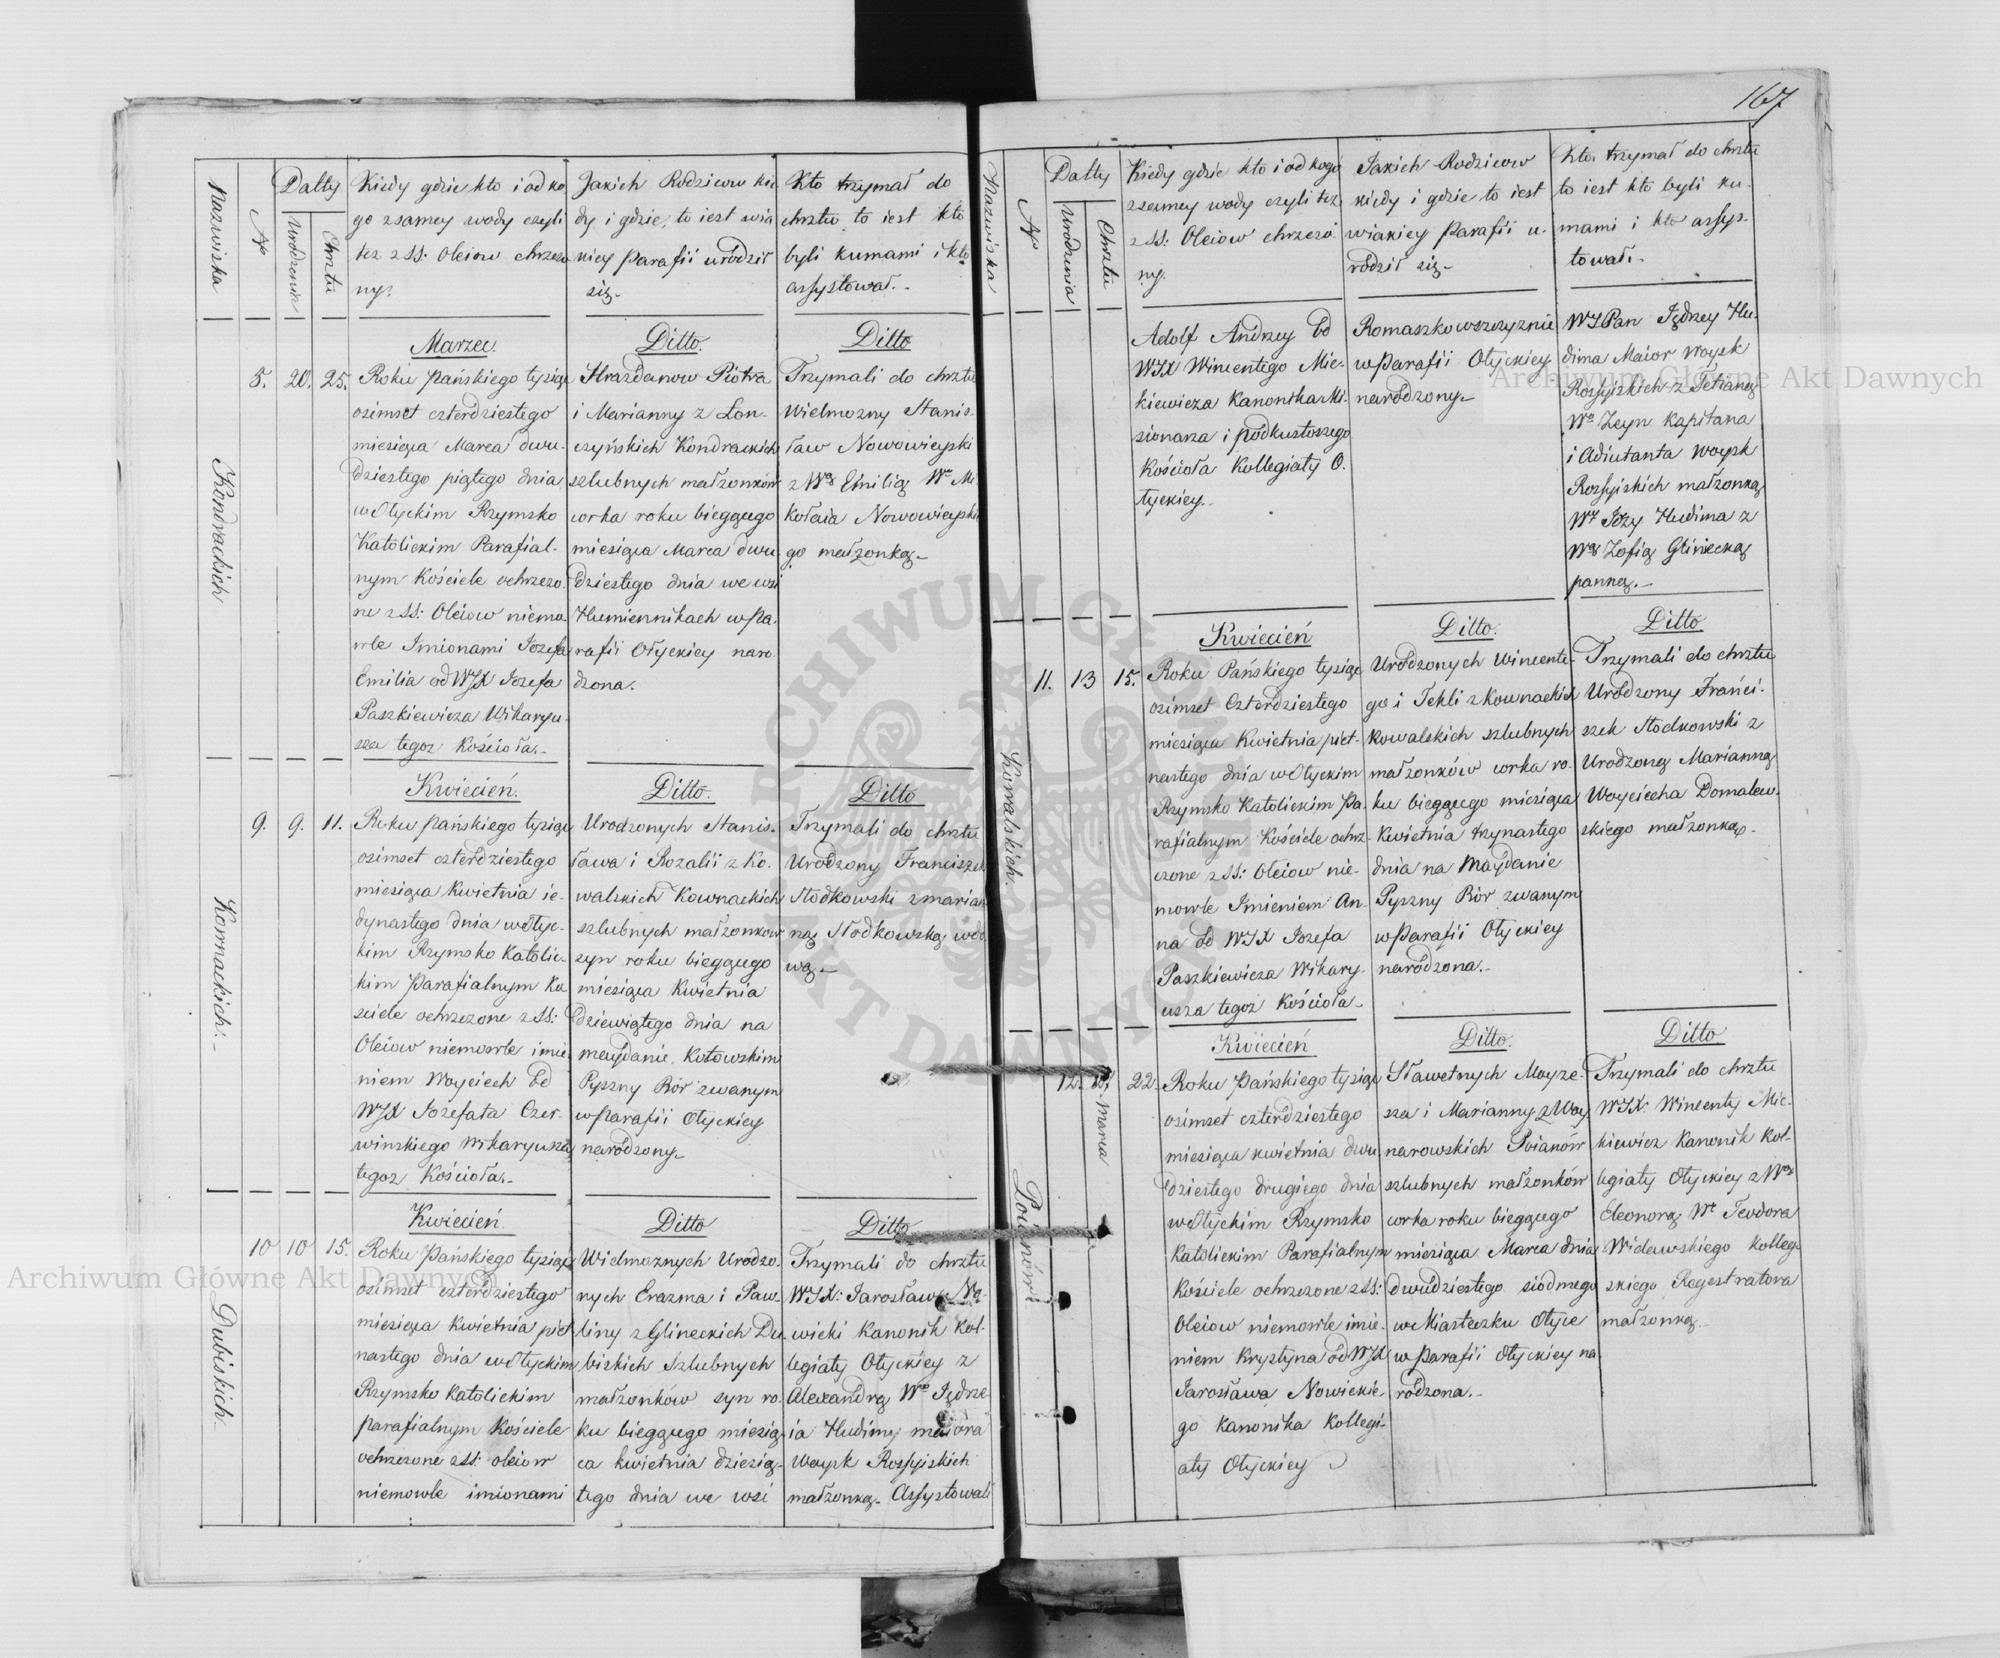 167
Nazwiska
N
Datty
Urodzenia
Chrztu
Kiedy gdzie kto i od ko
go z samey wody czyli
tez z SS: Oleiow chrzczo
ny.
Jakich Rodzicow kie
dy i gdzie, to iest wia
kiey Parafii urodził
się.
Kto trzymał do
chrztu to iest kto
byli kumami i kto
assystował.
Kondrackich
8. 20. 25.
Marzec.
Roku Pańskiego tysiąc
osimset czterdziestego
miesiąca Marca dwu-
dziestego piątego dnia
w Ołyckim Rzymsko
Katolickim Parafial-
nym Kościele ochrzczo
ne z SS: Oleiow niemo-
wle Imionami Jozefa
Emilia od WJX Jozefa
Paszkiewicza Wikaryu-
sza tegoz Kościoła.
Ditto.
Hrazdanow Piotra
i Marianny z Lon-
czyńskich Kondrackich
szlubnych małzonków
corka roku bieggcego
miesiąca Marca dwu-
dziestego dnia we wsi
Humiennikach w Pa-
rafii Ołyckiey naro-
dzona.
Ditto
Trzymali do chrztu
Wielmozny Stanis-
ław Nowowieyski
z Wą Emilią We Mi
kołaia Nowowieyskie
go małzonką.
Kownackich.
9. 9. 11.
Kwiecień.
Roku Pańskiego tysiąc
osimset czterdziestego
miesiąca Kwietnia ie-
dynastego dnia w Ołyc-
kim Rzymsko Katolic-
kim Parafialnym Ko
sciele ochrzczone z SS:
Oleiow niemowle imie-
niem Woyciech Od
WJX Jozefata Czer-
winskiego Wikaryusza
tegoz Kościoła.
Ditto.
Urodzonych Stanis-
ława i Rozalii z Ko-
walskich Kownackich
szlubnych małzonkow
syn roku bieggcego
miesiąca Kwietnia
dziewiątego dnia na
maydanie Kotowskim
Pyszny Bór zwanym
w Parafii Ołyckiey
narodzony.
Ditto
Trzymali do chrztu
Urodzony Franciszek
Stodkowski z marian
ną Stodkowską wdo
wą.
Dubiskich.
10 10 15.
Kwiecień.
Roku Pańskiego tysiąc
osimset czterdziestego
miesiąca Kwietnia piet-
nastego dnia w Ołyckim
Rzymsko Katolickim
parafialnym Kościele
ochrzczone z SS: oleiow
niemowle imionami
Ditto
Wielmoznych Urodzo-
nych Erazma i Paw-
liny z Glineckich Du-
biskich Szlubnych
małzonków syn ro-
ku bieggcego miesią-
ca kwietnia dziesią-
tego dnia we wsi
Ditto
Trzymali do chrztu
WJX: Jarosław No-
wicki Kanonik Kol-
legiaty Ołyckiey z
Alexandrą We Jędrze
ia Hudimy maiora
Woysk Rossyiskich
małzonką. Assystowali
Nazwiska
N
Datty
Urodzenia
Chrztu
Kiedy gdzie kto i od kogo
z samey wody czyli tez
z SS: Oleiow chrzczo
ny.
Jakich Rodzicow
kiedy i gdzie to iest
w iakiey Parafii u-
rodził się.
Kto trzymał do chrztu
to iest kto byli ku-
mami i kto assys-
tował.
Adolf Andrzey Od
WJX Wincentego Mic-
kiewicza Kanonika Mi-
sionarza i podkustoszego
Kościoła Kollegiaty O-
łyckiey.
Romaszkowszczyznie
w Parafii Ołyckiey
narodzony.
WJPan Jędrzey Hu-
dima Maior Woysk
Rossyiskich z Tetianą
We Zeyn Kapitana
i Adiutanta Woysk
Rossyiskich małzonką
Wy Jozy Hudima z
Wą Zofią Glinecką
panną.
Kowalskich.
11. 13 15.
Kwiecień
Roku Pańskiego tysiąc
osimset Czterdziestego
miesiąca Kwietnia piet-
nastego dnia w Ołyckim
Rzymsko Katolickim Pa-
rafialnym Kościele ochrz-
czone z SS: Oleiow nie-
mowle Imieniem An-
na Od WJX Jozefa
Paszkiewicza Wikary-
usza tegoz Kościoła
Ditto.
Urodzonych Wincente-
go i Tekli z Kownackich
Kowalskich szlubnych
małzonków corka ro-
ku bieggcego miesiąca
Kwietnia trzynastego
dnia na Maydanie
Pyszny Bór zwanym
w Parafii Ołyckiey
narodzona.
Ditto
Trzymali do chrztu
Urodzony Franci-
szek Stodkowski z
Urodzoną Marianną
Woyciecha Domalew-
skiego małzonką.
12. Marca 22.
Kwiecień
Roku Pańskiego tysiąc
osimset czterdziestego
miesiąca kwietnia dwu
dziestego drugiego dnia
w Ołyckim Rzymsko
Katolickim Parafialnym
Kościele ochrzczone z SS:
Oleiow niemowle imie-
niem Krystyna od WJX
Jarosława Nowickie
go Kanonika Kollegi-
aty Ołyckiey
Ditto.
Sławetnych Moyze-
sza i Marianny z Woy
narowskich Poianów
szlubnych małzonków
corka roku bieggcego
miesiąca Marca dnia
dwudziestego siodmego
w Miasteczku Ołyce
w Parafii Ołyckiey na
rodzona.
Ditto
Trzymali do chrztu
WJX: Wincenty Mic-
kiewicz Kanonik Kol-
legiaty Ołyckiey z Wą
Eleonorą We Teodora
Widawskiego Kolleg-
skiego Regestratora
małzonką.
Archiwum Główne Akt Dawnych
Archiwum Główne Akt Dawnych
ARCHIWUM GŁÓWNE AKT DAWNYCH